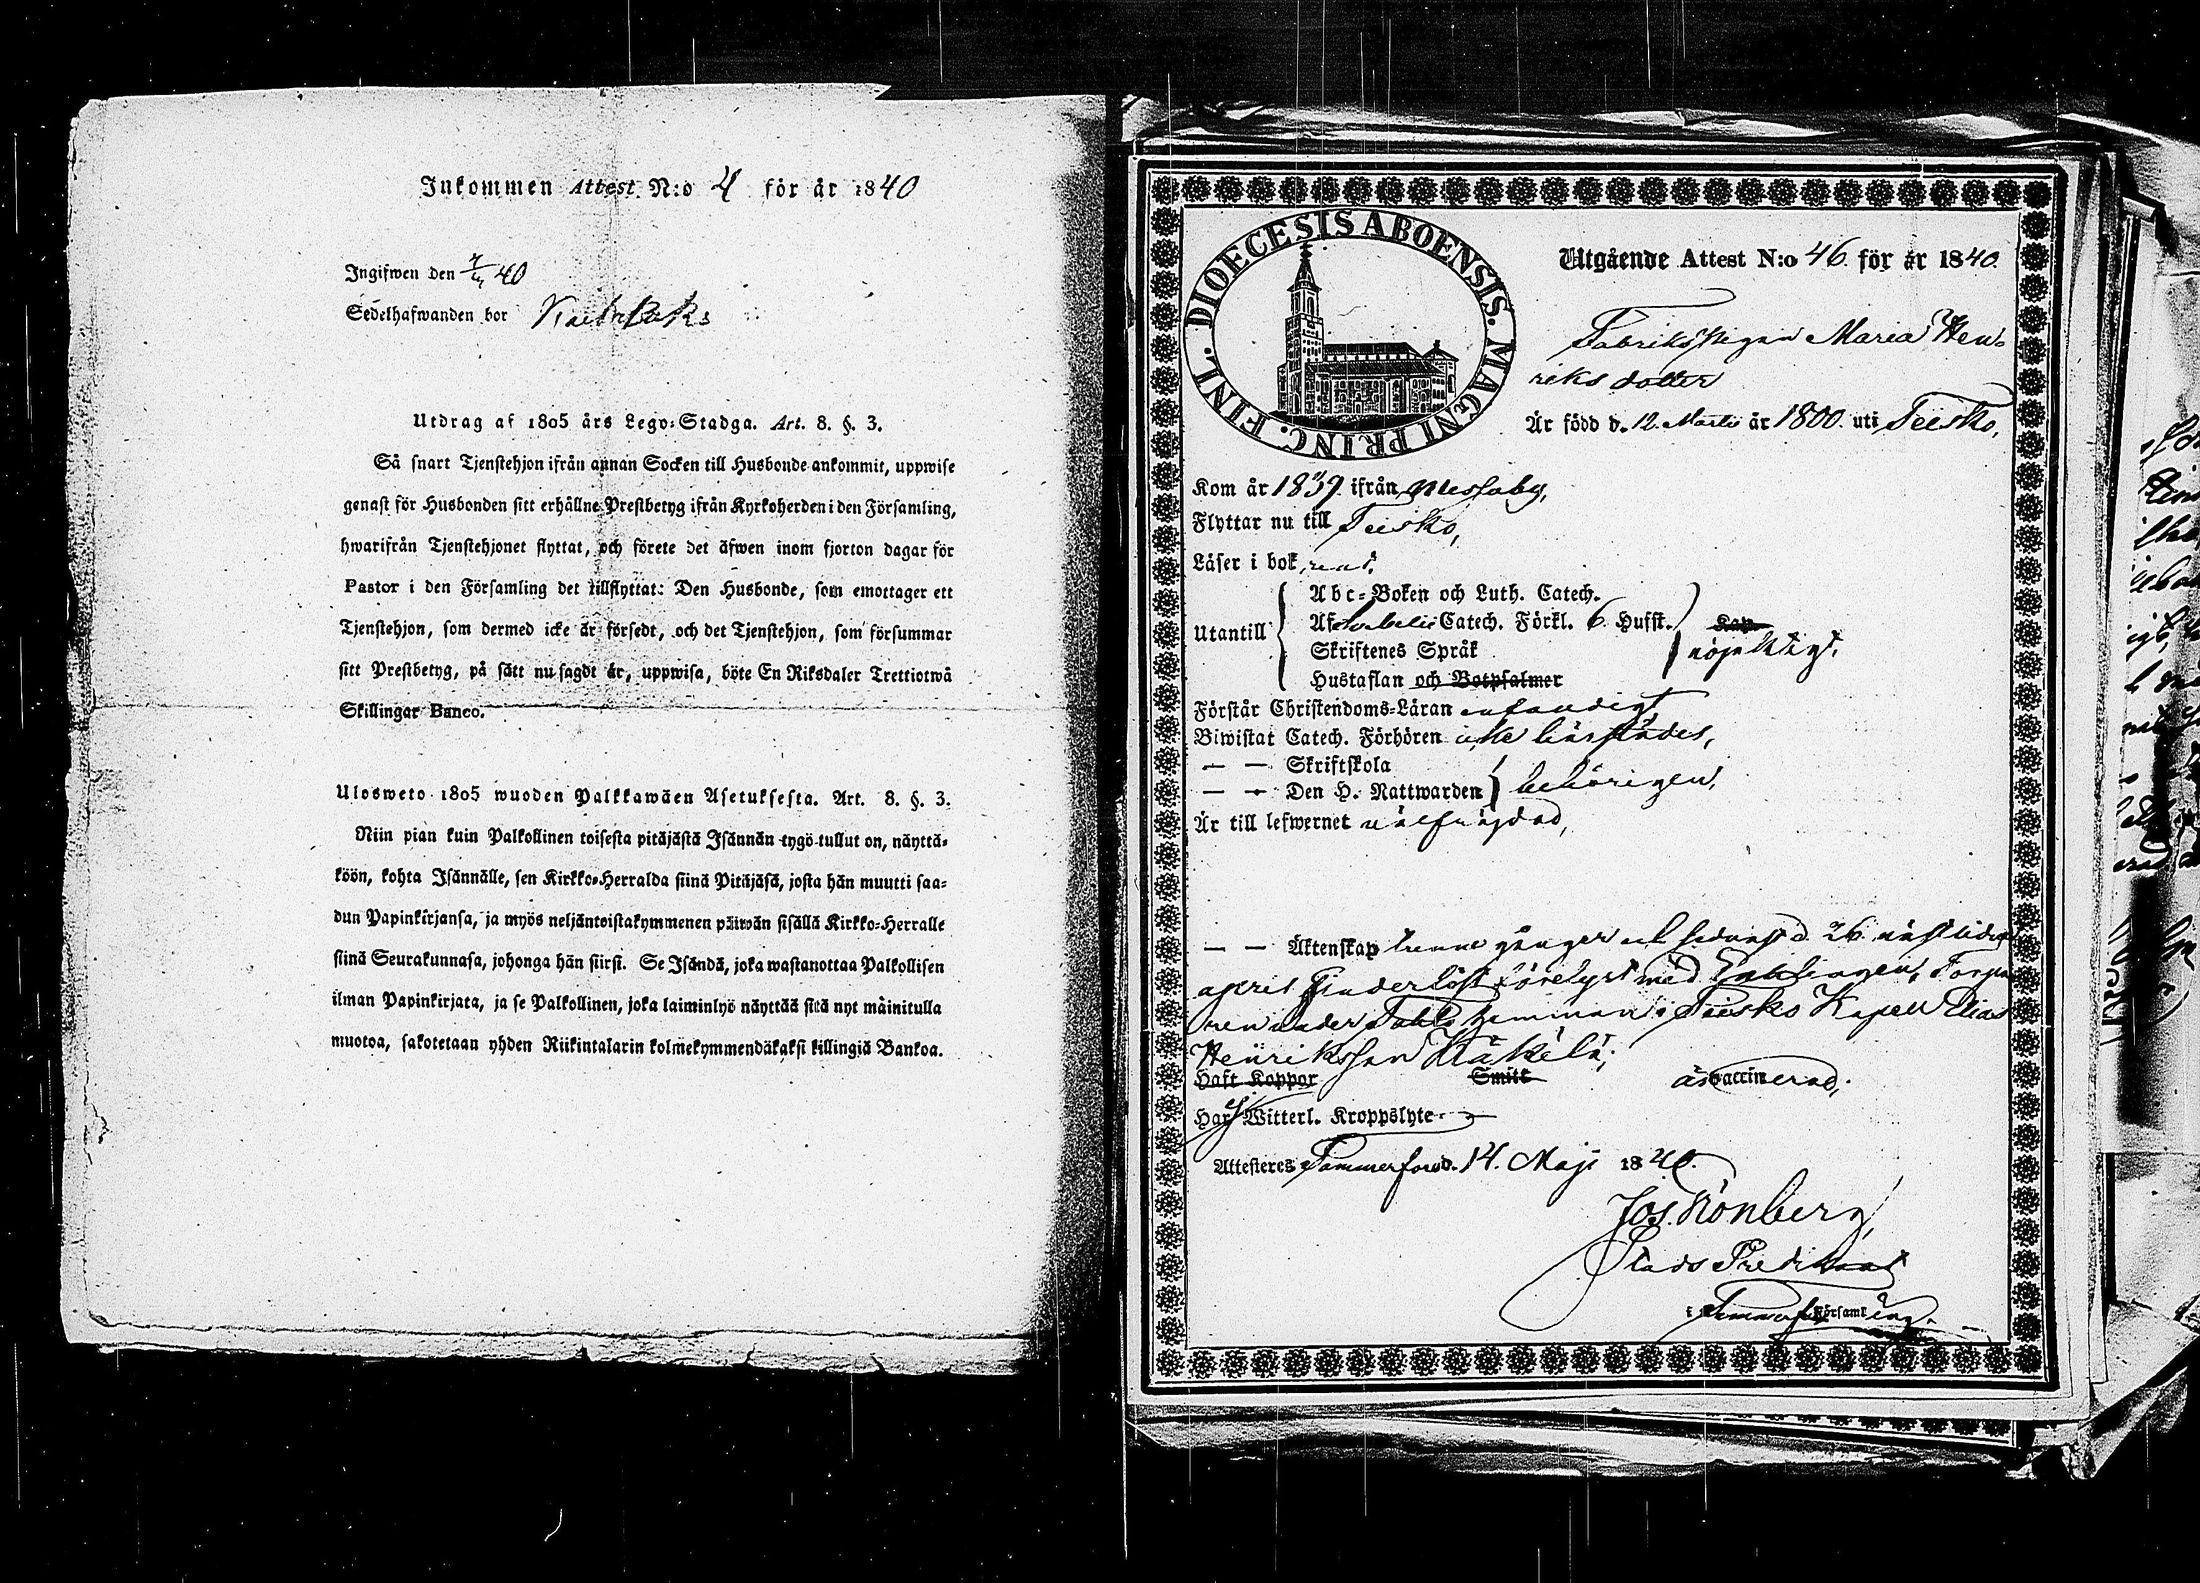 Inkommen Attest N:o 4 för år 1840
Ingifwen den 7/4 40
Sedelhafwanden bor
Utdrag af 1805 års Lego-Stadga. Art. 8. §. 3.
Så snart Tjenstehjon ifrån annan Socken till Husbonde ankommit, uppwise
genast för Husbonden sitt erhållne Prestbetyg ifrån Kyrkoherden i den Församling,
hwarifrån Tjenstehjonet flyttat, och förete det äfwen inom fjorton dagar för
Pastor i den Församling det tillflyttat: Den Husbonde, som emottager ett
Tjenstehjon, som dermed icke är försedt, och det Tjenstehjon, som försummar
sitt Prestbetyg, på sätt nu sagdt är, uppwisa, böte En Riksdaler Trettiotwå
Skillingar Banco.
Ulosweto 1805 wuoden Palkkawäen Asetuksesta. Art. 8. §. 3.
Niin pian kuin Palkollinen toisesta pitäjästä Isännän tygö tullut on, näyttä-
köön, kohta Isännälle, sen Kirkko-Herralda siinä Pitäjäsä, josta hän muutti saa-
dun Papinkirjansa, ja myös neljäntoistakymmenen päiwän sisällä Kirkko-Herralle
siinä Seurakunnasa, johonga hän siirsi. Se Isändä, joka wastanottaa Palkollisen
ilman Papinkirjata, ja se Palkollinen, joka laiminlyö näyttää sitä nyt mainitulla
muotoa, sakotetaan yhden Riikintalarin kolmekymmendäkaksi killingiä Bankoa.
DIOECESIS ABOENSIS. MAGNI PRINC. FINL.
Utgående Attest N:o 46. för år 1840.
Fabrikspigan Maria Hen-
riks dotter
Är född d. 12. Martii år 1800. uti Teisko,
Kom år 1839. ifrån Messuby,
Flyttar nu till Teisko,
Läser i bok rent,
Utantill
Abc-Boken och Luth. Catech.
Af Svebelii Catech. Förkl. 6 Hufst.
Skriftenes Språk
nöjaktigt.
Hustaflan och Botpsalmer
Förstår Christendoms-Läran
Biwistat Catech. Förhören icke härstädes,
— — Skriftskola
— — Den H. Nattwarden behörigen,
Är till lefwernet välfräjdad,
— — Äktenskap trenne gånger och sednast d. 26. nästledne
april hinderlöst förelyst med Enklingen, Torpa-
ren under hemman i Teisko Kapell Elias
Henriksson Käkelä;
Haft Koppor Smitt är vaccinerad.
Har Witterl. Kroppslyte
Attesteres Tammerfors d. 14. Maji 1840.
Jos. Rönberg
Stads Predikant
i Församling.